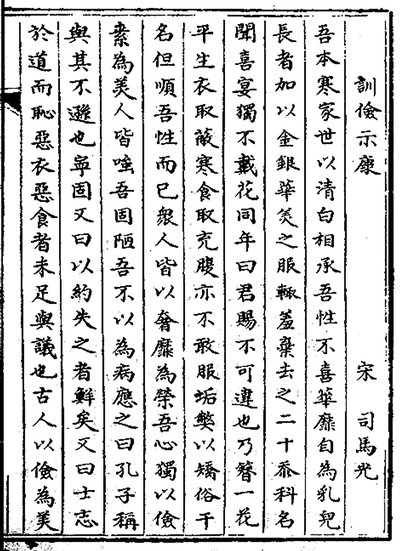 訓儉示康 宋 司馬光
吾本寒家世以清白相承吾性不喜華靡自為乳兒
長者加以金銀華美之服輒羞棄去之二十忝科名
聞喜宴獨不戴花同年曰君賜不可違也乃簪一花
平生衣取蔽寒食取充腹亦不敢服垢弊以矯俗干
名但順吾性而已衆人皆以奢靡為榮吾心獨以儉
素為美人皆嗤吾固陋吾不以為病應之曰孔子稱
與其不遜也寧固又曰以約失之者鮮矣又曰士志
於道而恥惡衣惡食者未足與議也古人以儉為美